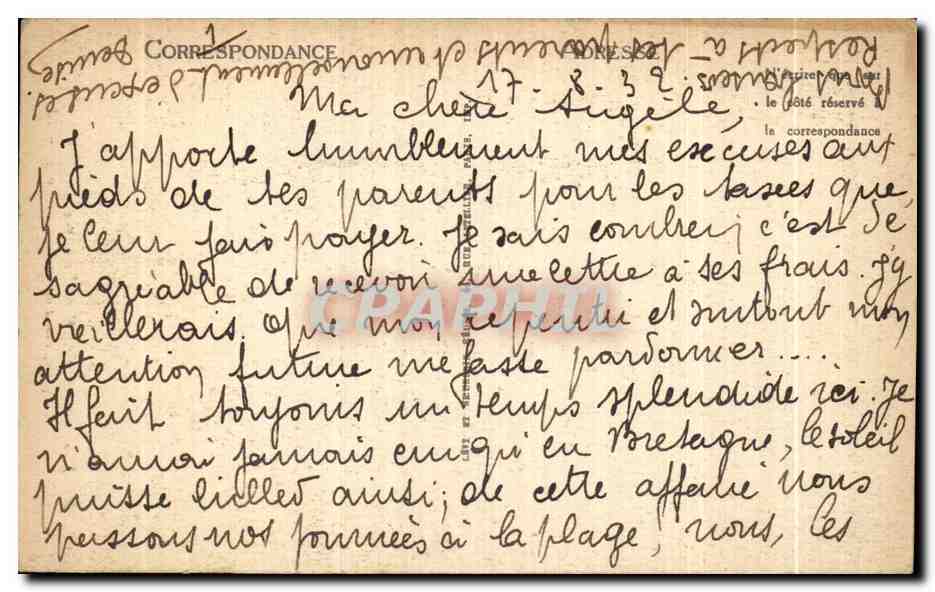 CORRESPONDANCE
ADRESSE
N'écrire que sur
le côté réservé à
la correspondance
17 - 8 - 32
Ma chère Angèle,
J'apporte humblement mes excuses aux
pieds de tes parents pour les taxes que
je leur fais payer. Je sais combien c'est dé
sagréable de recevoir une lettre à ses frais. J'y
veillerais. Que mon repentir et surtout mon
attention future me fasse pardonner....
Il fait toujours un temps splendide ici. Je
n'aurai jamais cru qu'en Bretagne, le soleil
puisse briller ainsi; de cette affaire nous
passons nos journées à la plage, nous, les
Respects à tes parents et
renouvellement d'excuses.
Denise
LÉVY ET NEURDEIN RÉUNIS, 44, RUE LETELLIER, PARIS, IMP.
CPARHTI